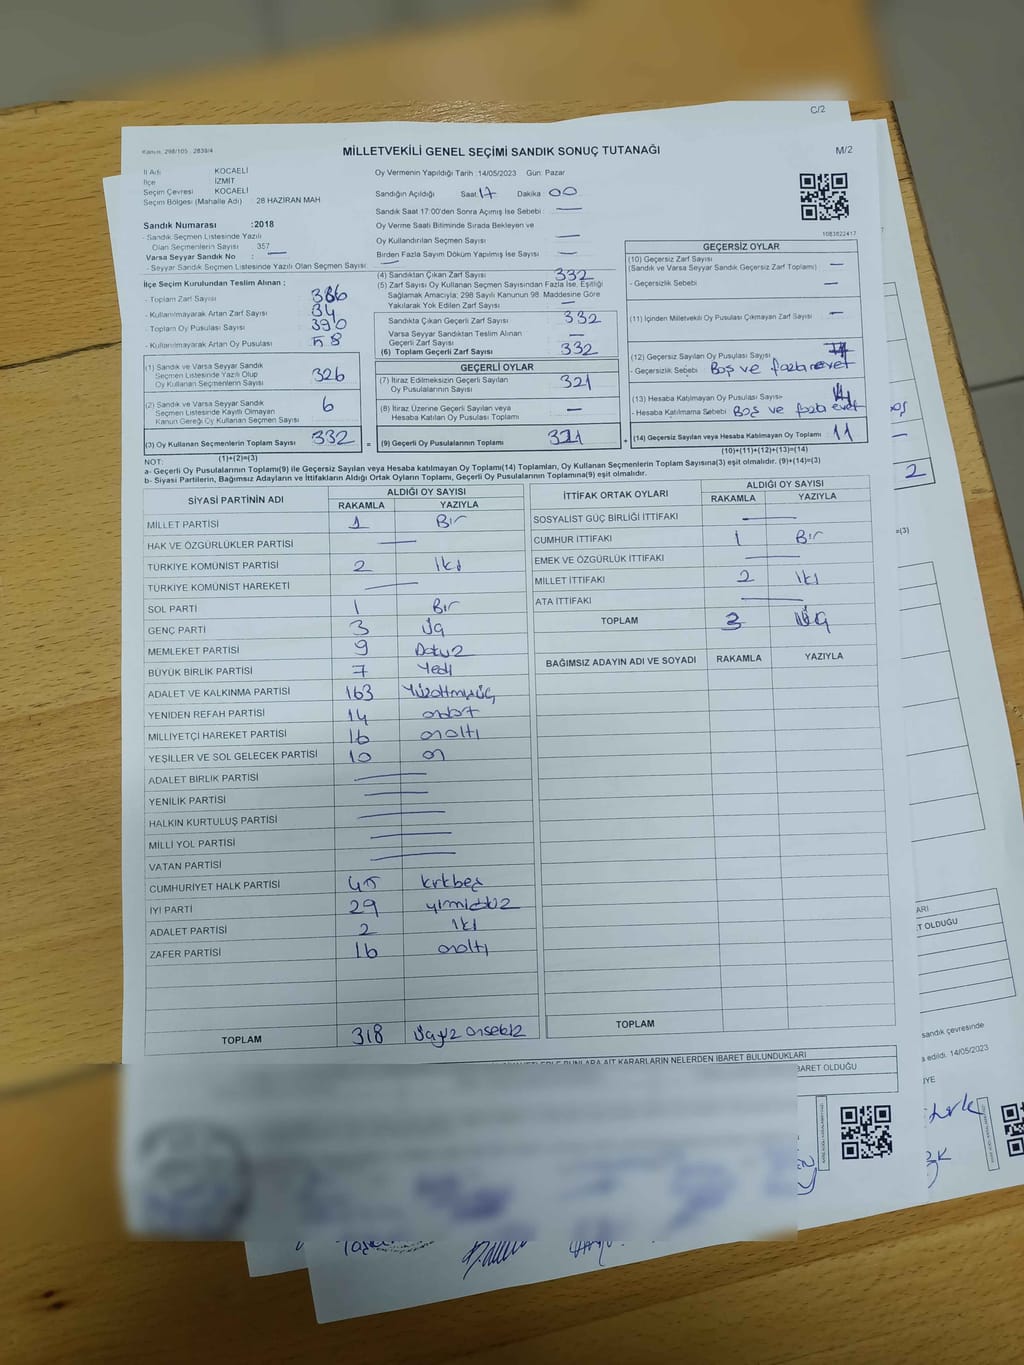 C/2
Kanun: 298/105 , 2839/4
MİLLETVEKİLİ GENEL SEÇİMİ SANDIK SONUÇ TUTANAĞI
M/2
İl Adı KOCAELİ
İlçe İZMİT
Seçim Çevresi KOCAELİ
Seçim Bölgesi (Mahalle Adı) 28 HAZİRAN MAH
Sandık Numarası :2018
- Sandık Seçmen Listesinde Yazılı
Olan Seçmenlerin Sayısı : 357
Varsa Seyyar Sandık No : —
- Seyyar Sandık Seçmen Listesinde Yazılı Olan Seçmen Sayısı: —
Oy Vermenin Yapıldığı Tarih :14/05/2023 Gün: Pazar
Sandığın Açıldığı Saat: 17 Dakika : 00
Sandık Saat 17:00'den Sonra Açımış İse Sebebi : —
Oy Verme Saati Bitiminde Sırada Bekleyen ve
Oy Kullandırılan Seçmen Sayısı —
Birden Fazla Sayım Döküm Yapılmış İse Sayısı : —
İlçe Seçim Kurulundan Teslim Alınan ;
- Toplam Zarf Sayısı : 386
- Kullanılmayarak Artan Zarf Sayısı : 34
- Toplam Oy Pusulası Sayısı : 390
- Kullanılmayarak Artan Oy Pusulası : 58
(1) Sandık ve Varsa Seyyar Sandık
Seçmen Listesinde Yazılı Olup
Oy Kullanan Seçmenlerin Sayısı 326
(2) Sandık ve Varsa Seyyar Sandık
Seçmen Listesinde Kayıtlı Olmayan
Kanun Gereği Oy Kullanan Seçmen Sayısı 6
(3) Oy Kullanan Seçmenlerin Toplam Sayısı 332 =
(1)+(2)=(3)
(4) Sandıktan Çıkan Zarf Sayısı 332
(5) Zarf Sayısı Oy Kullanan Seçmen Sayısından Fazla İse, Eşitliği
Sağlamak Amacıyla; 298 Sayılı Kanunun 98. Maddesine Göre
Yakılarak Yok Edilen Zarf Sayısı : —
Sandıkta Çıkan Geçerli Zarf Sayısı 332
Varsa Seyyar Sandıktan Teslim Alınan
Geçerli Zarf Sayısı —
(6) Toplam Geçerli Zarf Sayısı 332
GEÇERLİ OYLAR
(7) İtiraz Edilmeksizin Geçerli Sayılan
Oy Pusulalarının Sayısı 321
(8) İtiraz Üzerine Geçerli Sayılan veya
Hesaba Katılan Oy Pusulası Toplamı —
(9) Geçerli Oy Pusulalarının Toplamı 321 +
1083822417
GEÇERSİZ OYLAR
(10) Geçersiz Zarf Sayısı
(Sandık ve Varsa Seyyar Sandık Geçersiz Zarf Toplamı) —
- Geçersizlik Sebebi : —
(11) İçinden Milletvekili Oy Pusulası Çıkmayan Zarf Sayısı —
(12) Geçersiz Sayılan Oy Pusulası Sayısı
- Geçersizlik Sebebi Boş ve fazla evet
(13) Hesaba Katılmayan Oy Pusulası Sayısı
- Hesaba Katılmama Sebebi Boş ve fazla evet
(14) Geçersiz Sayılan veya Hesaba Katılmayan Oy Toplamı 11
(10)+(11)+(12)+(13)=(14)
NOT:
a- Geçerli Oy Pusulalarının Toplamı(9) ile Geçersiz Sayılan veya Hesaba katılmayan Oy Toplamı(14) Toplamları, Oy Kullanan Seçmenlerin Toplam Sayısına(3) eşit olmalıdır. (9)+(14)=(3)
b- Siyasi Partilerin, Bağımsız Adayların ve İttifakların Aldığı Ortak Oyların Toplamı, Geçerli Oy Pusulalarının Toplamına(9) eşit olmalıdır.
SİYASİ PARTİNİN ADI ALDIĞI OY SAYISI
RAKAMLA YAZIYLA
MİLLET PARTİSİ 1 Bir
HAK VE ÖZGÜRLÜKLER PARTİSİ —
TÜRKİYE KOMÜNİST PARTİSİ 2 İki
TÜRKİYE KOMÜNİST HAREKETİ —
SOL PARTİ 1 Bir
GENÇ PARTİ 3 Üç
MEMLEKET PARTİSİ 9 Dokuz
BÜYÜK BİRLİK PARTİSİ 7 Yedi
ADALET VE KALKINMA PARTİSİ 163 Yüzaltmışüç
YENİDEN REFAH PARTİSİ 14 ondört
MİLLİYETÇİ HAREKET PARTİSİ 16 onaltı
YEŞİLLER VE SOL GELECEK PARTİSİ 10 on
ADALET BİRLİK PARTİSİ —
YENİLİK PARTİSİ —
HALKIN KURTULUŞ PARTİSİ —
MİLLİ YOL PARTİSİ —
VATAN PARTİSİ —
CUMHURİYET HALK PARTİSİ 45 kırkbeş
İYİ PARTİ 29 yirmidokuz
ADALET PARTİSİ 2 İki
ZAFER PARTİSİ 16 onaltı
TOPLAM 318 Üçyüz onsekiz
İTTİFAK ORTAK OYLARI ALDIĞI OY SAYISI
RAKAMLA YAZIYLA
SOSYALİST GÜÇ BİRLİĞİ İTTİFAKI —
CUMHUR İTTİFAKI 1 Bir
EMEK VE ÖZGÜRLÜK İTTİFAKI —
MİLLET İTTİFAKI 2 İki
ATA İTTİFAKI —
TOPLAM 3 Üç
BAĞIMSIZ ADAYIN ADI VE SOYADI RAKAMLA YAZIYLA
TOPLAM
BUNLARA AİT KARARLARIN NELERDEN İBARET BULUNDUKLARI
BARET OLDUĞU
2
=(3)
ARI
T OLDUĞU
sandık çevresinde
edildi. 14/05/2023
YE